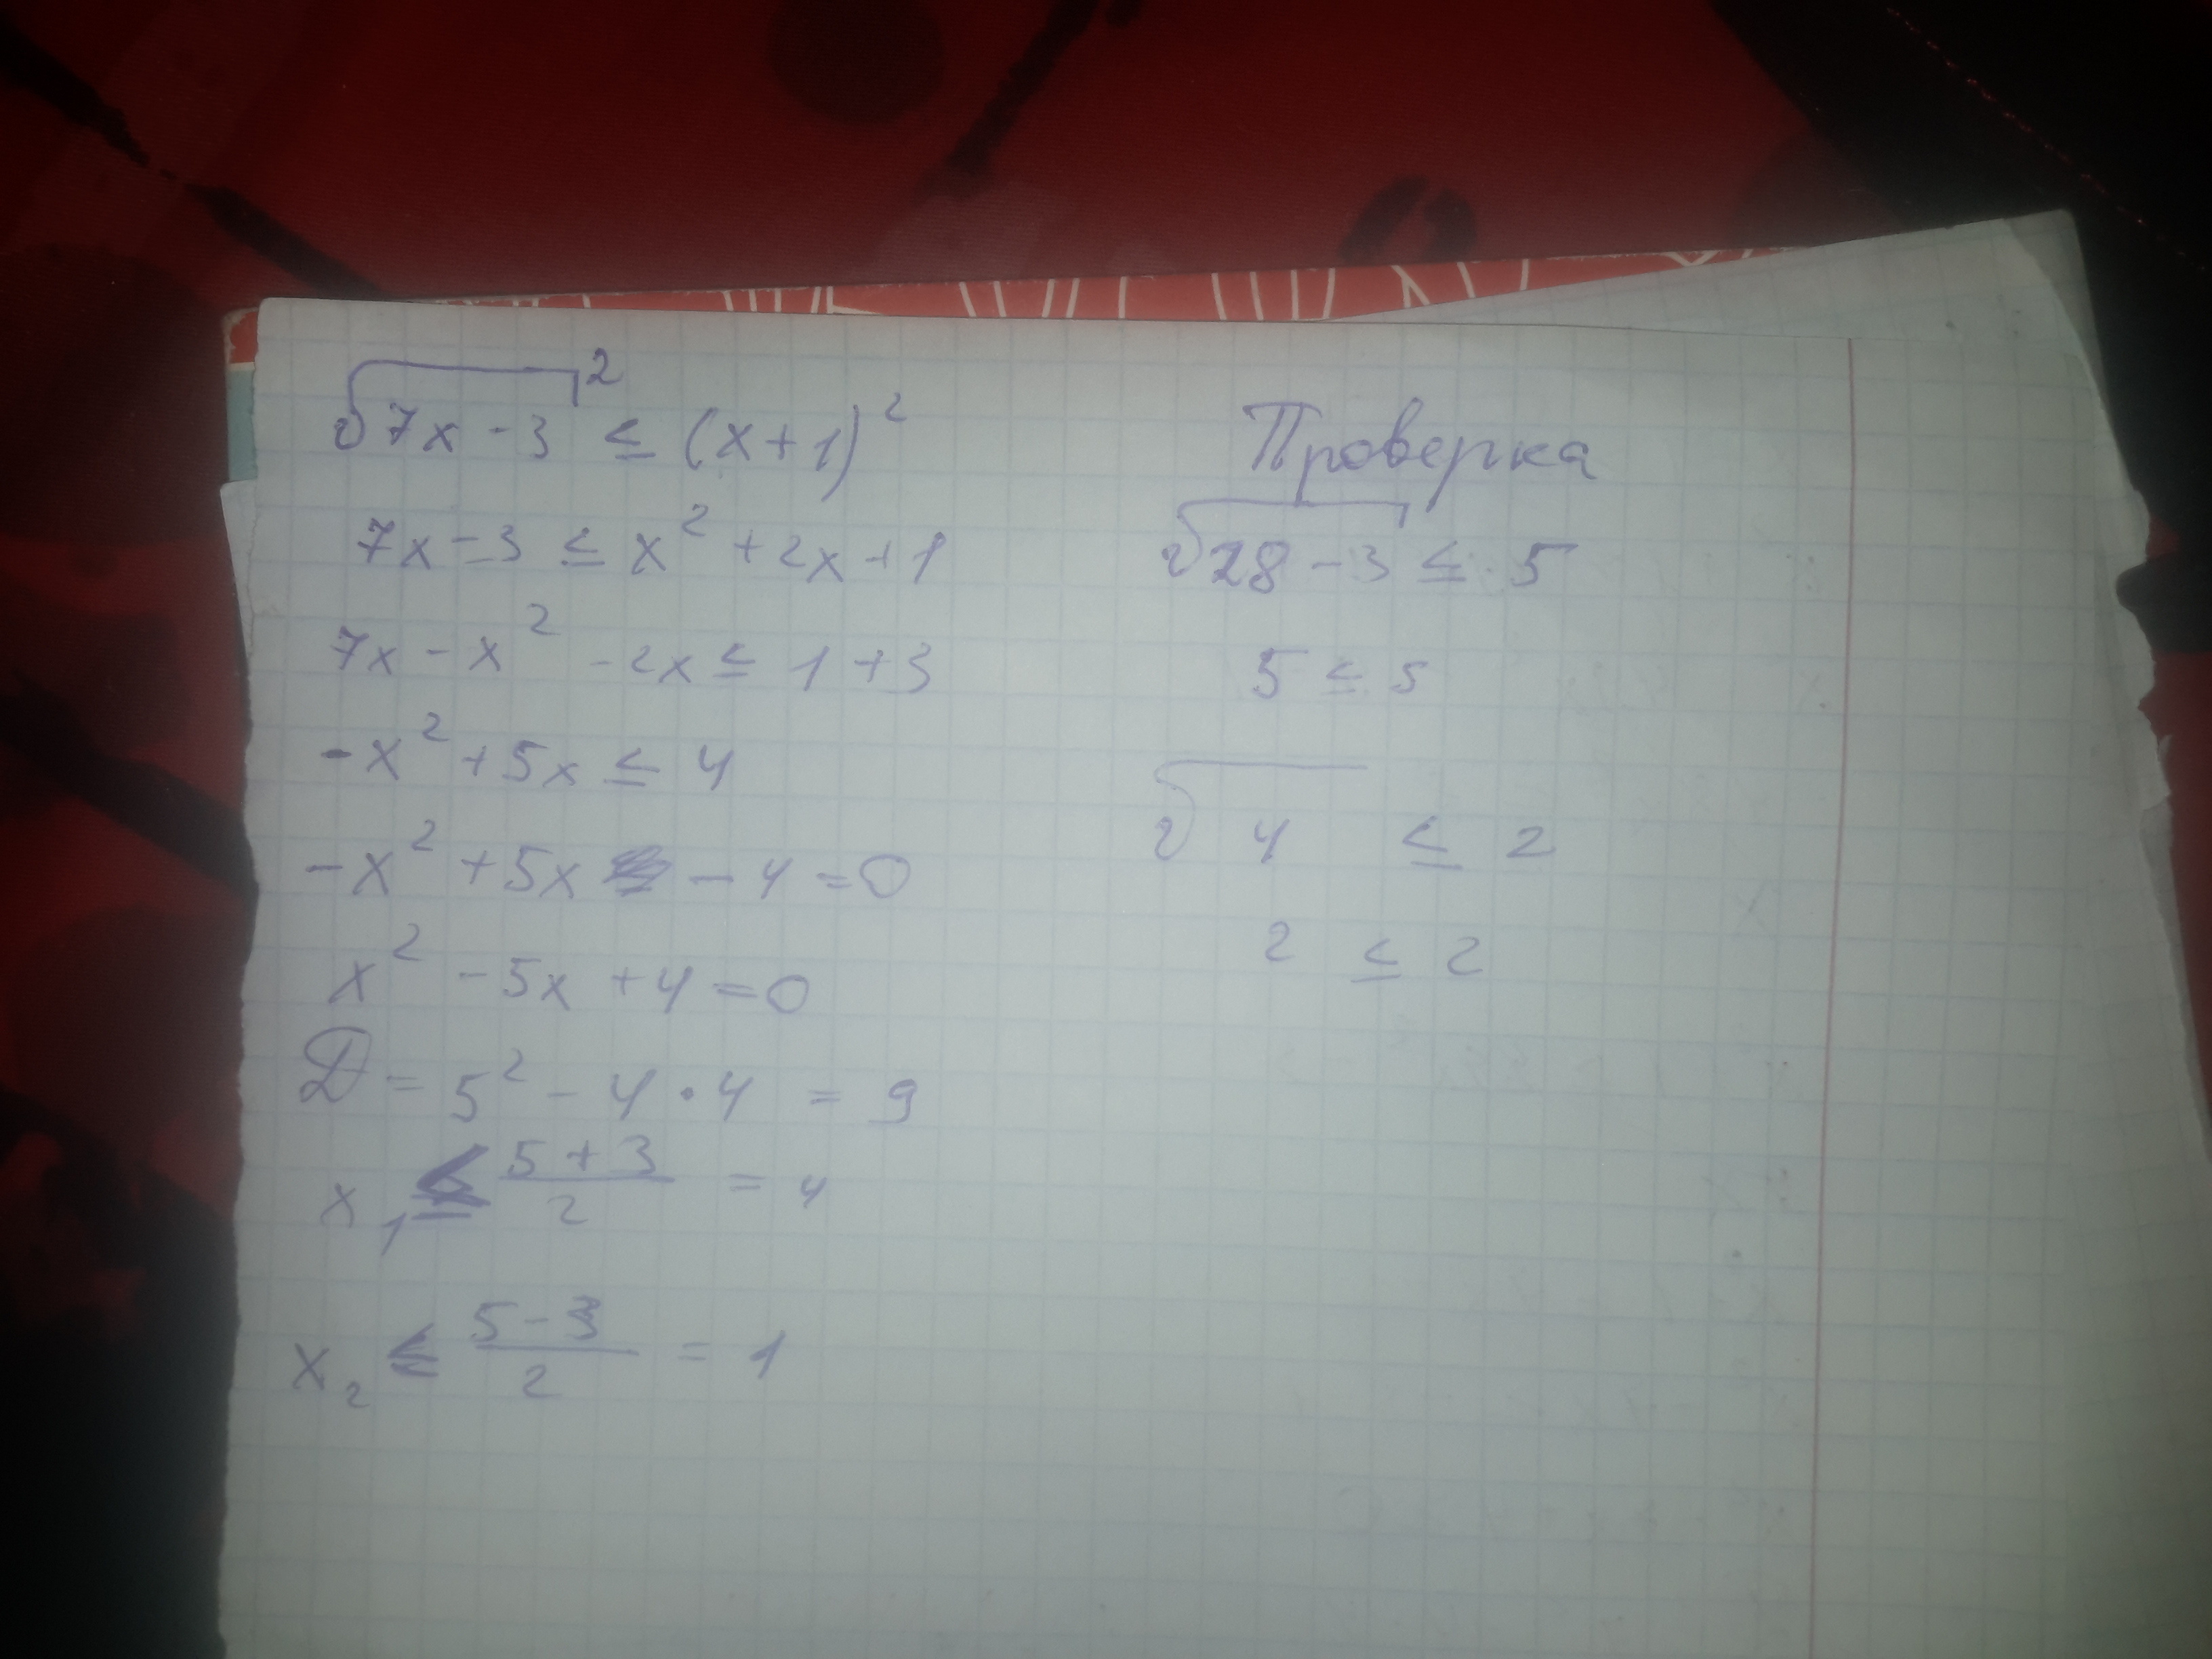 √7x - 3² ≤ (x+1)²
7x - 3 ≤ x² + 2x + 1
7x - x² - 2x ≤ 1 + 3
-x² + 5x ≤ 4
-x² + 5x - 4 = 0
x² - 5x + 4 = 0
D = 5² - 4 · 4 = 9
x₁ ≤ 5+3/2 = 4
x₂ ≤ 5-3/2 = 1
Проверка
√28 - 3 ≤ 5
5 ≤ 5
√4 ≤ 2
2 ≤ 2